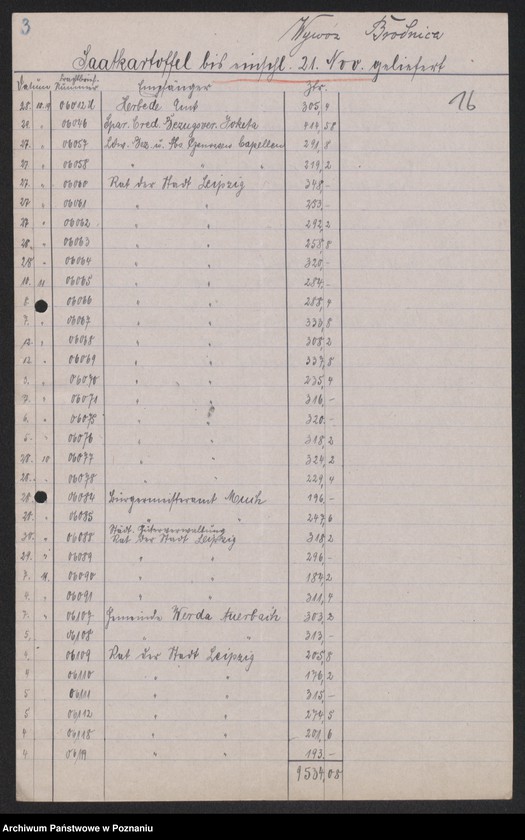 3
Wywóz Brodnica
Saatkartoffel bis einschl. 21. Nov. geliefert
16
Datum Frachtbrief-Nummer Empfänger Ztr.
28. 10. 06012 Herbede Amt 305,4
21. " 06046 Spar. Cred. Bezugsver. 414,58
27. " 06057 Cappellen 291,8
27. " 06058 " " 219,2
27. " 06060 Rat der Stadt Leipzig 348,-
27. " 06061 " " 253,-
27. " 06062 " " 292,2
28. " 06063 " " 258,8
28. " 06064 " " 320,-
10. 11 06065 " " 284,-
8. 06066 " " 288,4
7. " 06067 " " 330,8
12. " 06068 " " 308,2
12. " 06069 " " 337,8
06070 " " 235,4
06071 " " 316,-
6. " 06075 " " 320,-
6. " 06076 " " 318,2
28. 10 06077 " " 324,2
28. " 06078 " " 229,4
28. 06084 Bürgermeisteramt 196,-
28. " 06085 " " 247,6
Städt. Güterverwaltung
30. " 06088 Rat der Stadt Leipzig 318,2
29. " 06089 " " 296,-
7. 11. 06090 " " 187,2
4. " 06091 " " 311,4
7. " 06107 Gemeinde Werda Auerbach 303,2
5. 06108 " " 313,-
4. 06109 Rat der Stadt Leipzig 205,8
4 06110 " " 176,2
5 06111 " " 315,-
5 06112 " " 274,5
4 06118 " " 201,6
4. 06119 " " 193,-
9534,08
Archiwum Państwowe w Poznaniu